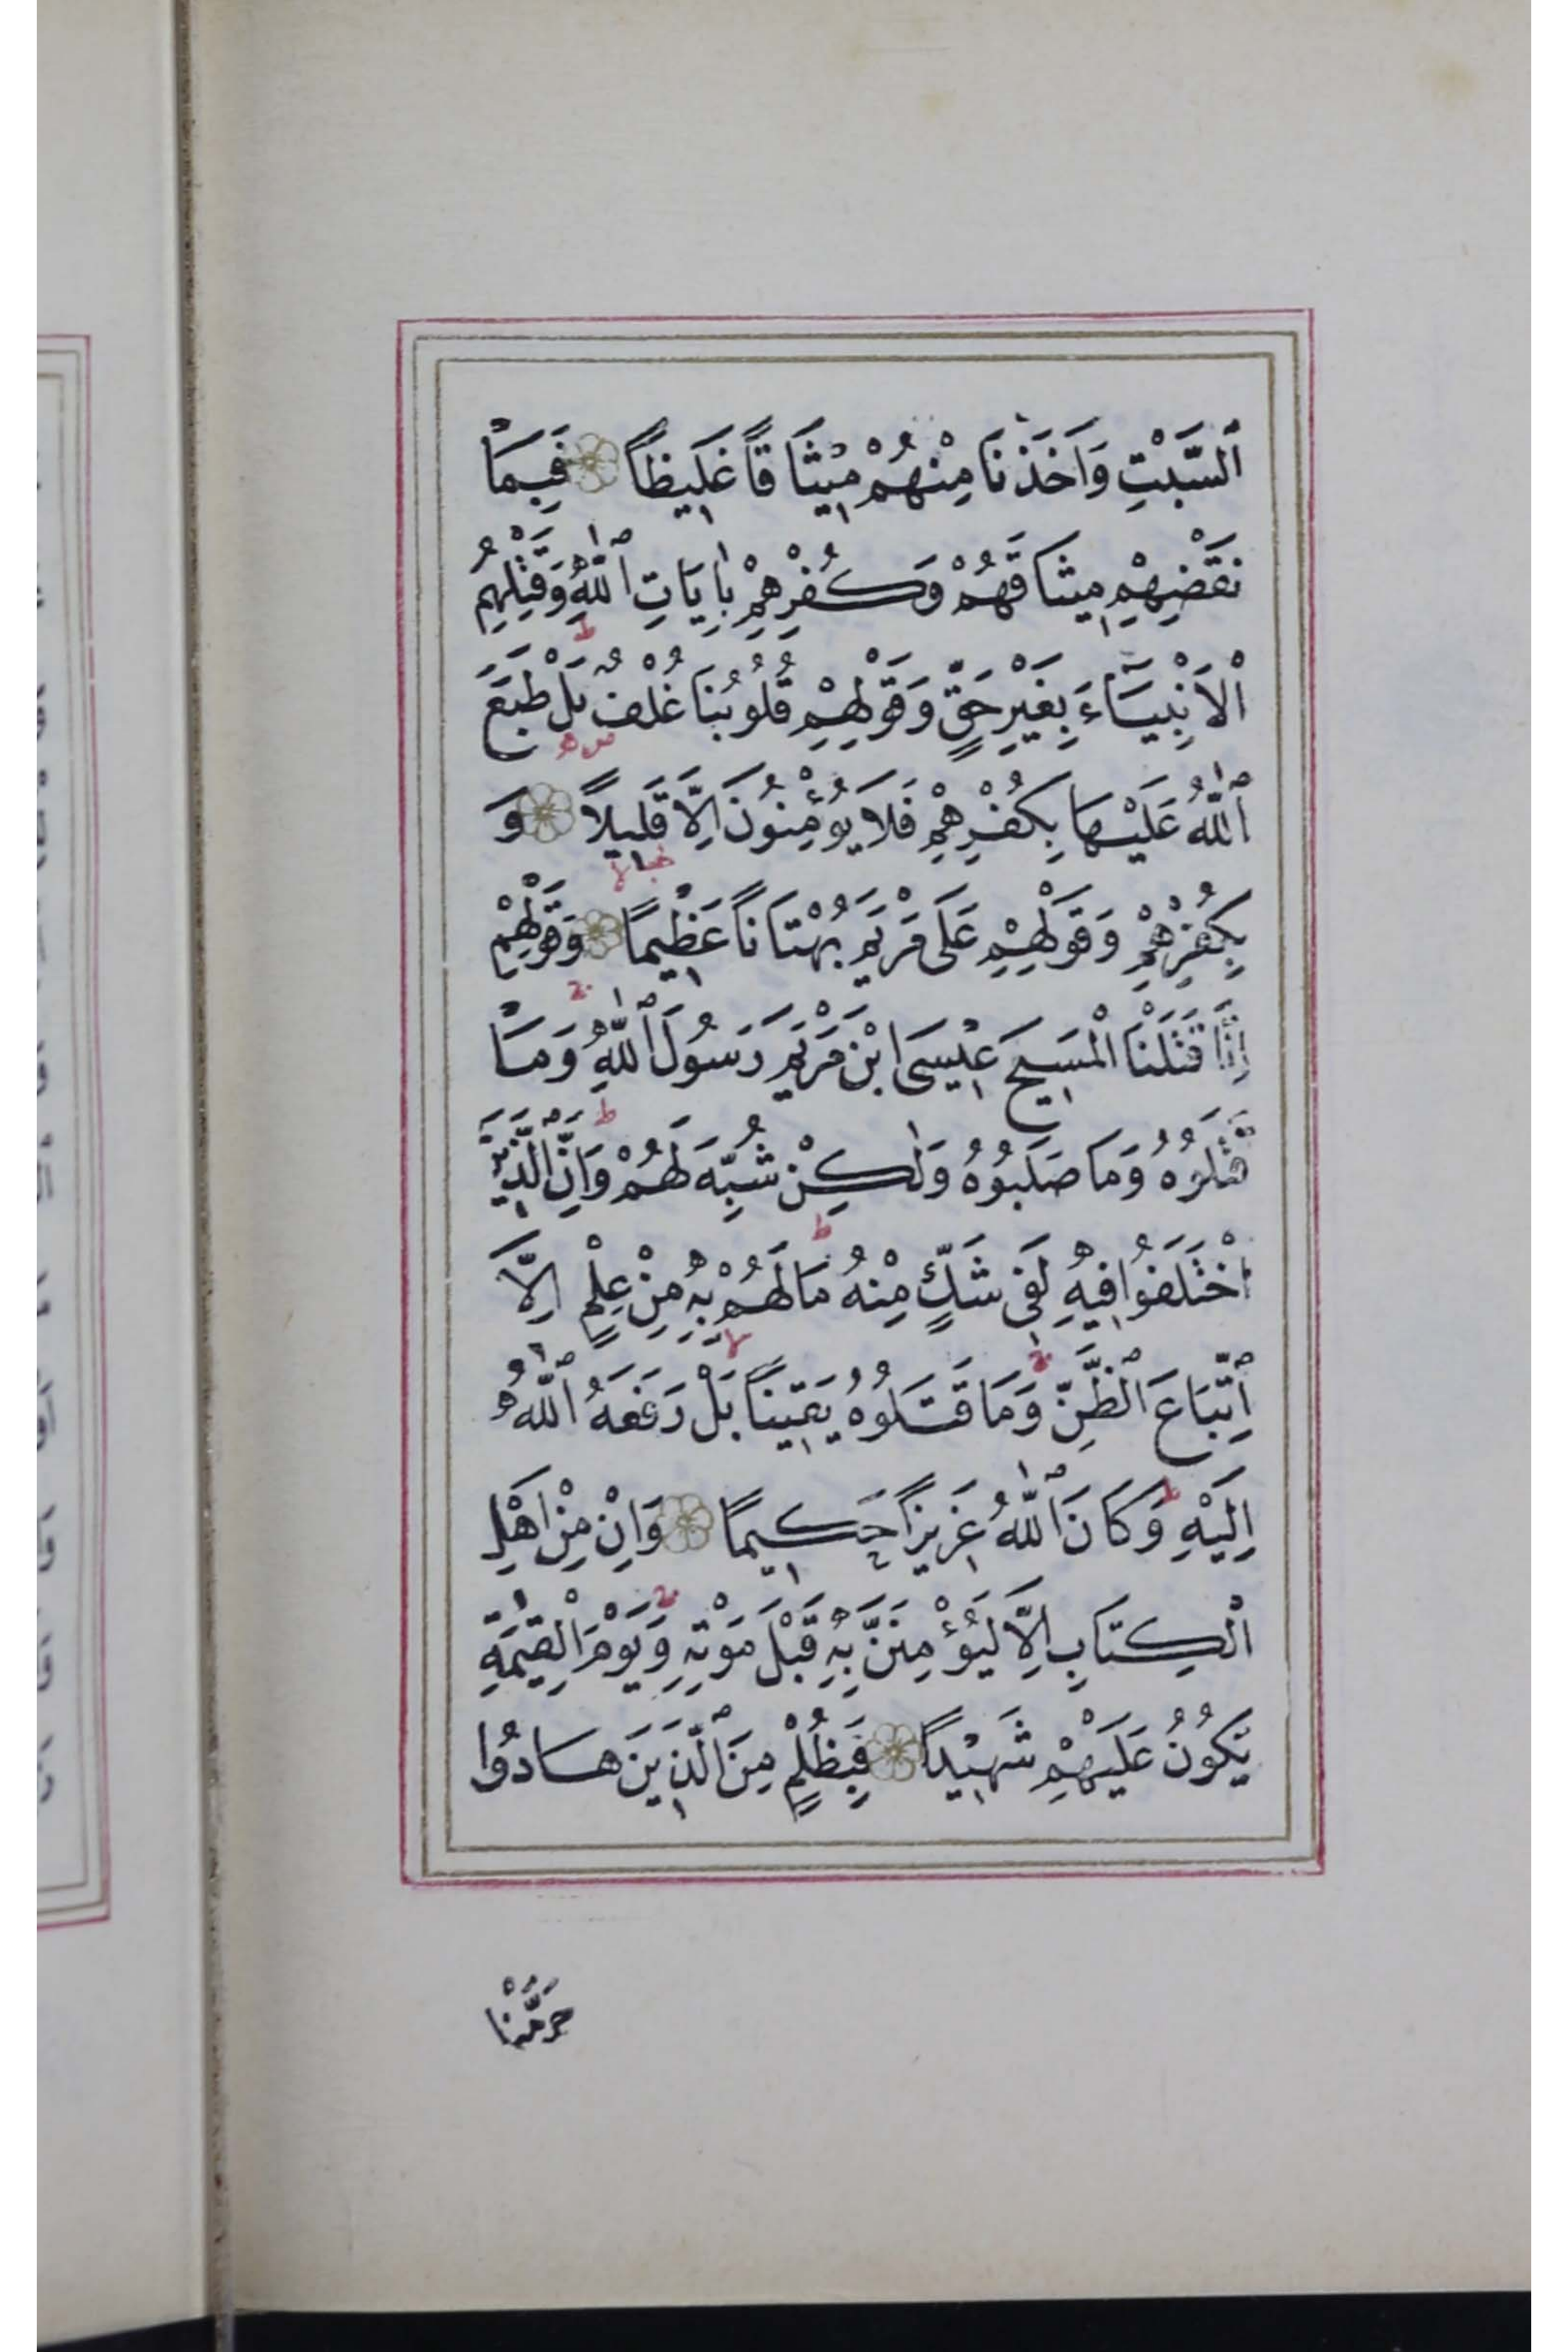 اَلسَّبْتِ وَاَخَذْنَا مِنْهُمْ مِيْثَاقًا غَلِيظًا فَبِمَا
نَقْضِهِمْ مِيثَاقَهُمْ وَكُفْرِهِمْ بِاٰيَاتِ اللّٰهِ وَقَتْلِهِمُ
الْاَنْبِيَآءَ بِغَيْرِ حَقٍّ وَقَوْلِهِمْ قُلُوبُنَا غُلْفٌ بَلْ طَبَعَ
اللّٰهُ عَلَيْهَا بِكُفْرِهِمْ فَلَا يُؤْمِنُونَ اِلَّا قَلِيلًا وَ
بِكُفْرِهِمْ وَقَوْلِهِمْ عَلٰى مَرْيَمَ بُهْتَانًا عَظِيمًا وَقَوْلِهِمْ
اِنَّا قَتَلْنَا الْمَسِيحَ عِيْسَى ابْنَ مَرْيَمَ رَسُولَ اللّٰهِ وَمَا
قَتَلُوهُ وَمَا صَلَبُوهُ وَلٰكِنْ شُبِّهَ لَهُمْ وَاِنَّ الَّذِينَ
اخْتَلَفُوا فِيهِ لَفِي شَكٍّ مِنْهُ مَا لَهُمْ بِهِ مِنْ عِلْمٍ اِلَّا
اتِّبَاعَ الظَّنِّ وَمَا قَتَلُوهُ يَقِينًا بَلْ رَفَعَهُ اللّٰهُ
اِلَيْهِ وَكَانَ اللّٰهُ عَزِيزًا حَكِيمًا وَاِنْ مِنْ اَهْلِ
الْكِتَابِ اِلَّا لَيُؤْمِنَنَّ بِهِ قَبْلَ مَوْتِهِ وَيَوْمَ الْقِيٰمَةِ
يَكُونُ عَلَيْهِمْ شَهِيدًا فَبِظُلْمٍ مِنَ الَّذِينَ هَادُوا
حَرَّمْنَا